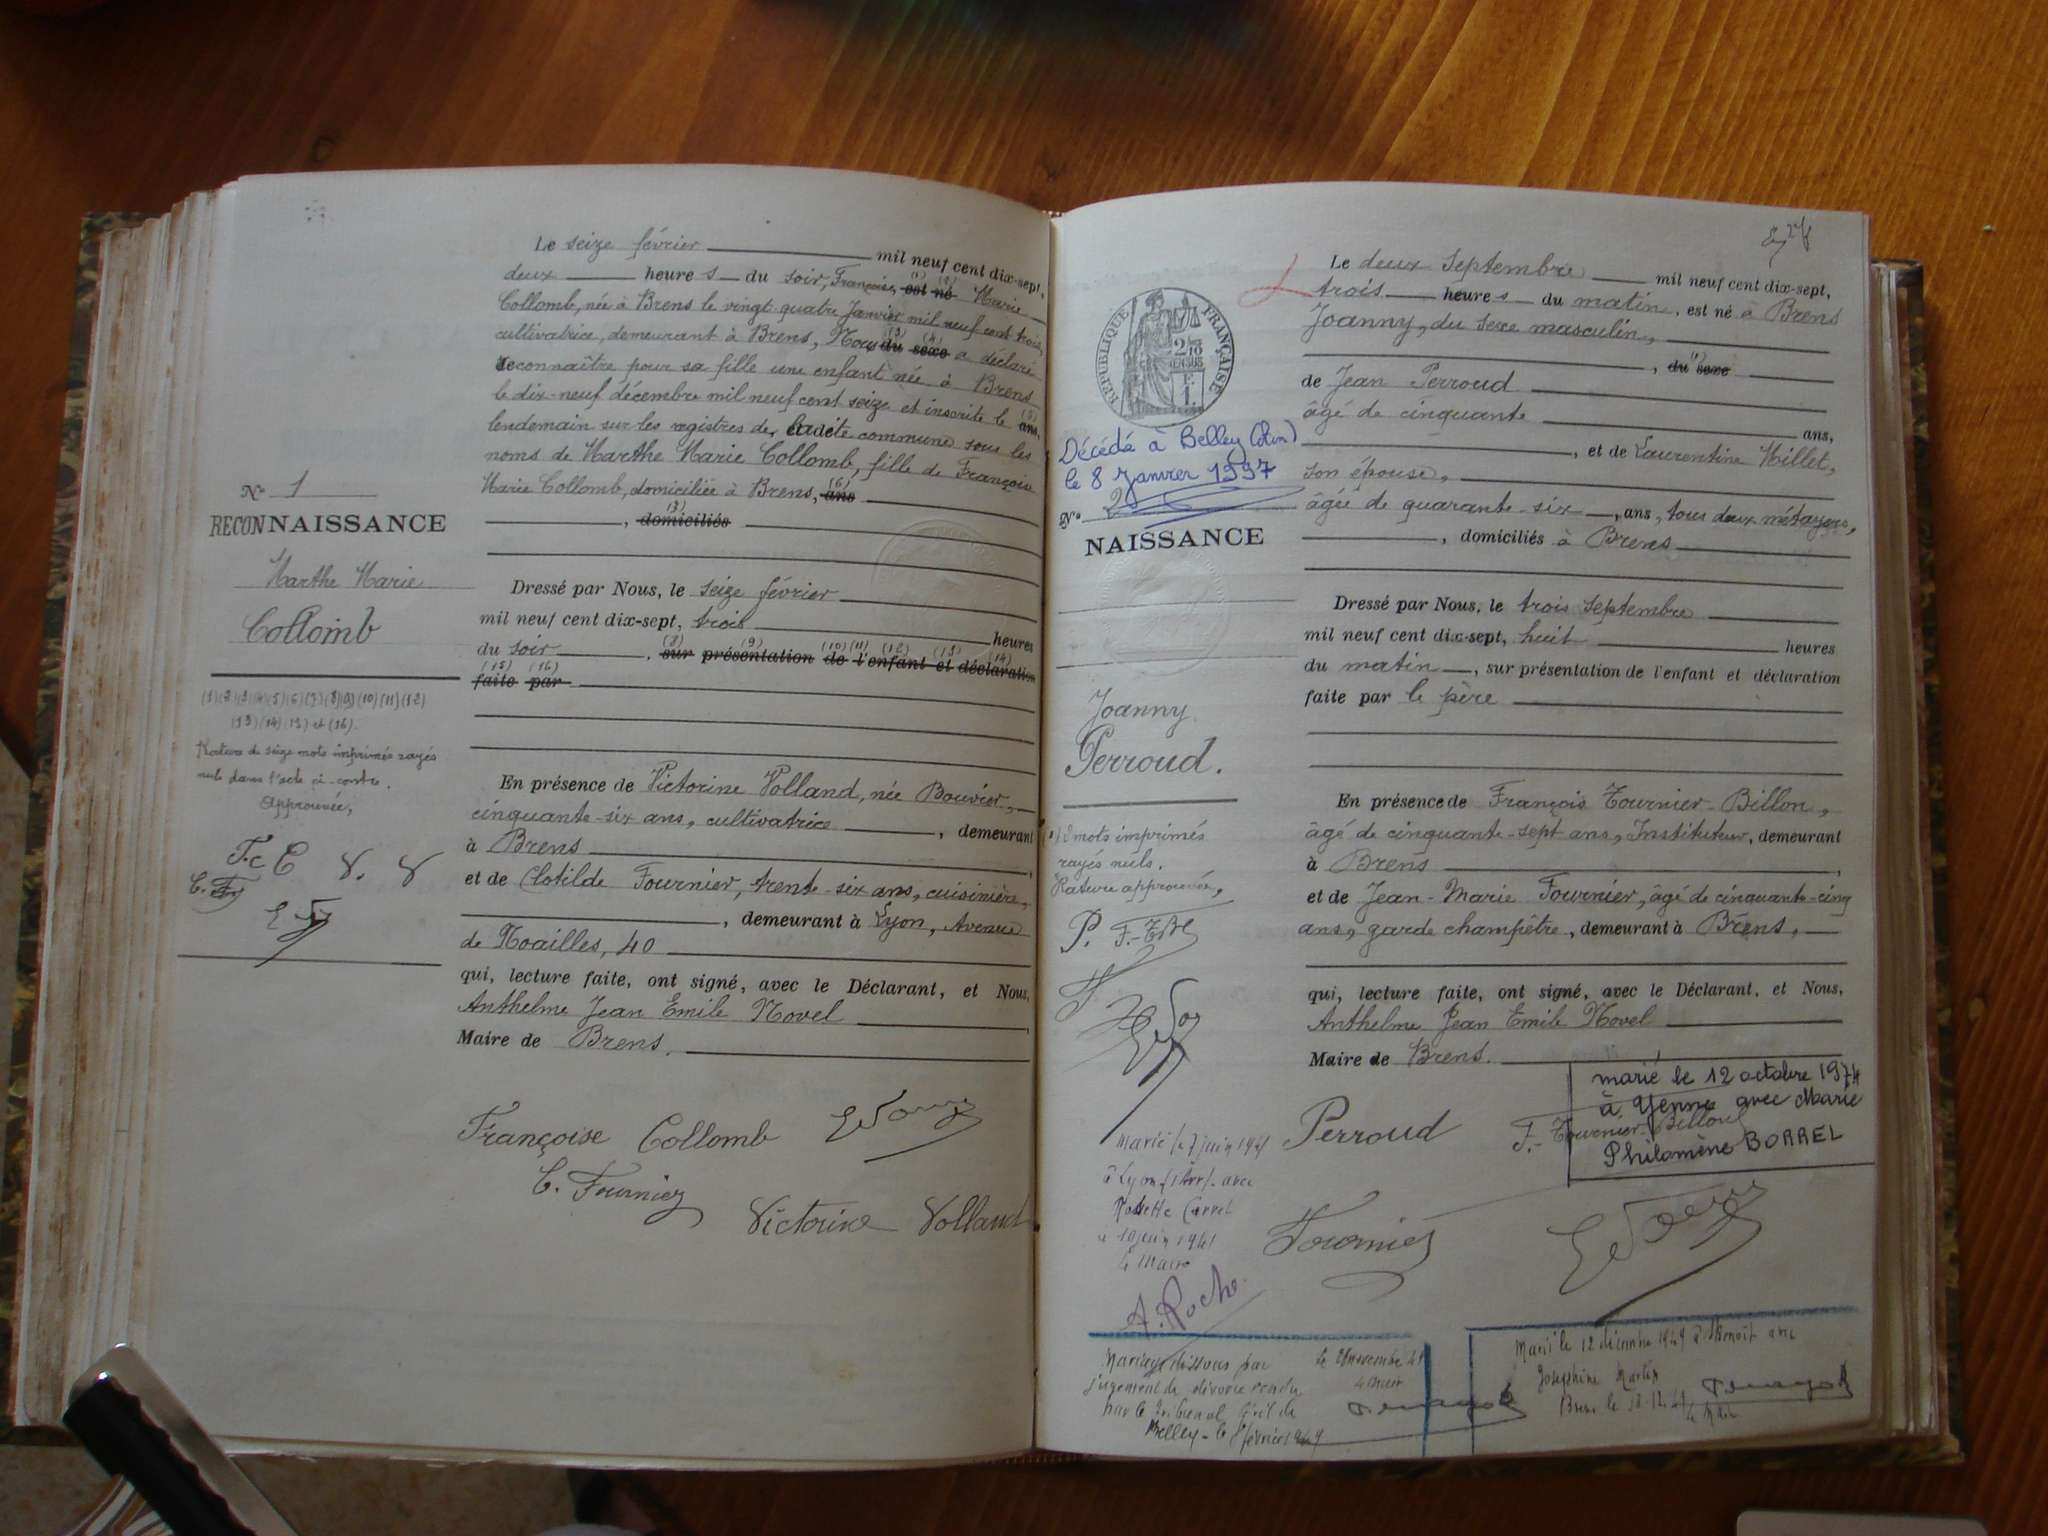 Le seize février mil neuf cent dix-sept,
deux heures du soir, Françoise, (1) est (2) né Marie
Collomb, née à Brens le vingt quatre Janvier mil neuf cent trois,
cultivatrice, demeurant à Brens, (3) du (4) sexe a déclaré
reconnaître pour sa fille une enfant née à Brens
le dix-neuf décembre mil neuf cent seize et inscrite le (5) ans,
lendemain sur les registres de commune sous les
noms de Marthe Marie Collomb, fille de Françoise
Marie Collomb, domiciliée à Brens, (6) ans
, domiciliés
Dressé par Nous, le seize février
mil neuf cent dix-sept, trois heures
du soir, (8) sur (9) présentation (10) de (11) l'(12)enfant (13) et (14) déclaration
(15) faite (16) par
En présence de Victorine Volland, née Bouvier,
cinquante-six ans, cultivatrice, demeurant
à Brens,
et de Clotilde Fournier, trente-six ans, cuisinière,
, demeurant à Lyon, Avenue
de Noailles, 40
qui, lecture faite, ont signé, avec le Déclarant, et Nous,
Anthelme Jean Emile Novel,
Maire de Brens.
Françoise Collomb
C. Fournier
Victorine Volland
N° 1
RECONNAISSANCE
Marthe Marie
Collomb
(1)(2)(3)(4)(5)(6)(7)(8)(9)(10)(11)(12)
(13)(14)(15) et (16).
Rature de seize mots imprimés rayés
nuls dans l'acte ci-contre.
Approuvée,
F.C V. V
C. F.
RÉPUBLIQUE FRANÇAISE
Décédé à Belley (Ain)
le 8 Janvier 1997
N° 2
NAISSANCE
Joanny
Perroud.
(1) 2 mots imprimés
rayés nuls.
Rature approuvée,
P.
Marié le 7 juin 1941
à Lyon avec
10 juin 1941
le Maire
A. Roche
Mariage dissous par
jugement de divorce rendu
par le Tribunal Civil de
Belley - le février 1949
Le deux Septembre mil neuf cent dix-sept,
trois heures du matin, est né à Brens
Joanny, du sexe masculin,
, du (1) sexe
de Jean Perroud
âgé de cinquante ans,
, et de Laurentine Millet,
son épouse,
âgée de quarante-six, ans, tous deux métayers,
, domiciliés à Brens
Dressé par Nous, le trois septembre
mil neuf cent dix-sept, huit heures
du matin, sur présentation de l'enfant et déclaration
faite par le père
En présence de François Tournier-Billon,
âgé de cinquante-sept ans, Instituteur, demeurant
à Brens,
et de Jean-Marie Fournier, âgé de cinquante-cinq
ans, garde champêtre, demeurant à Brens,
qui, lecture faite, ont signé, avec le Déclarant, et Nous,
Anthelme Jean Emile Novel
Maire de Brens.
marié le 12 octobre 1974
à Yenne avec Marie
Philomène BORREL
Perroud F. Tournier-Billon
Fournier
Marié le 12 décembre 1949 à avec
Joséphine Martin
Brens le
le Maire